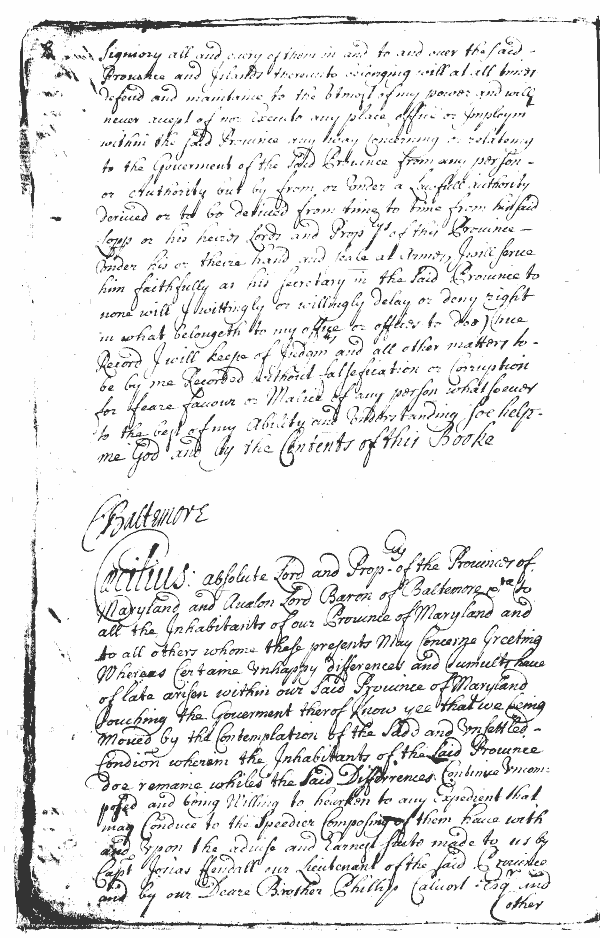 Signiory all and every of them in and to and over the said -
Province and Islands thereunto belonging will at all times
defend and maintaine to the utmost of my power and will
never accept of nor Execute any place office or Imploymt
within the said Province any way Concerning or relateing
to the Goverment of the said Province from any person -
or Authority but by from or under a Lawfull authority
derived or to be derived from time to time from his said
Lopp or his heires Lords and Proptys of this Province -
Under his or theire hand and seale at Armes I will serve
him faithfully as his Secretary in the said Province to
none will I wittingly or willingly delay or deny right
in what belongeth to my office or offices to doe true
Record I will keepe of Judgmts and all other matters to -
be by me Recorded without falsefication or Corruption
for feare favour or Malice of any person whatsoever
to the best of my Ability and understanding soe help -
me God and by the Contents of this Booke
CBaltemore
Cæcilius: absolute Lord and Proptry of the Provinces of
Maryland and Avalon Lord Baron of Baltemore &ta to
all the Inhabitants of our Province of Maryland and
to all others whome these presents May Concerne Greeting
Whereas Certaine unhappy differences and tumults have
of late arisen within our said Province of Maryland
touching the Goverment therof Know yee that we being
Moved by the Contemplation of the Sadd and unsettled -
Condicon wherein the Inhabitants of the said Province
doe remaine whiles the said Differrences Continue uncom-
posed and being Willing to hearken to any Expedient that
may Conduce to the Speedier Composing of them have with
and upon the advise and Earnest suite made to us by
Capt Josias ffendall our Lieutenant of the said Province
and by our Deare Brother Phillip Calvert Esqr and
other